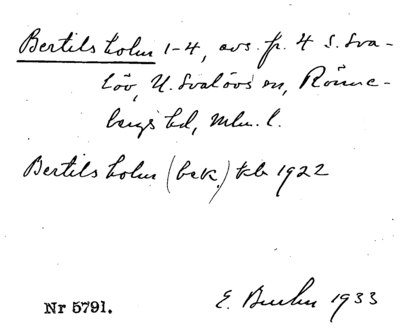 Bertilsholm 1-4, avs. fr. 4 S. Sva-
löv, N. Svalövs sn, Rönne-
bergs hd, Mlm. l.
Bertilsholm (bek.) tkb 1922
Nr 5791.
E. 1933